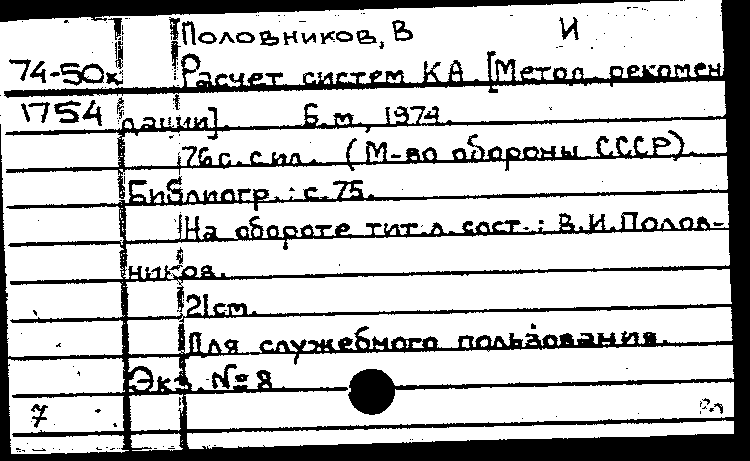 Половников, В И
74-50к Расчет систем КА. [Метод. рекомен
1754 дации]. Б.м., 1974.
76 с. с ил. (М-во обороны СССР).
Библиогр.: с. 75.
На обороте тит. л. сост.: В.И. Полов-
ников.
21 см.
Для служебного пользования.
Экз. № 8
7